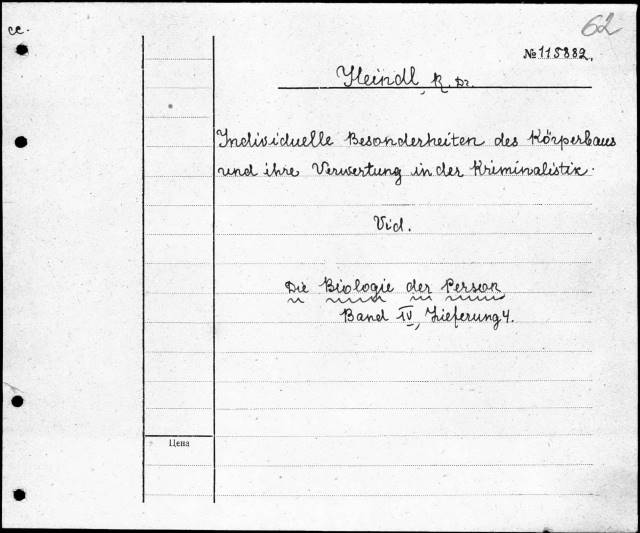 cc.
62
№ 115882.
Heindl, R. Dr.
Individuelle Besonderheiten des Körperbaus
und ihre Verwertung in der Kriminalistik.
Vid.
Die Biologie der Person
Band IV, Lieferung 4.
Цена